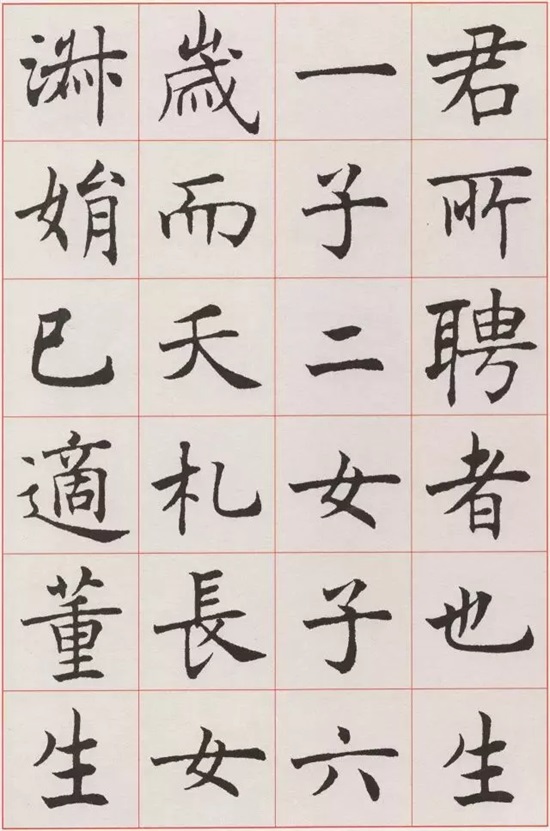 君所聘者也生
一子二女子六
歲而夭札長女
淋娟已適董生